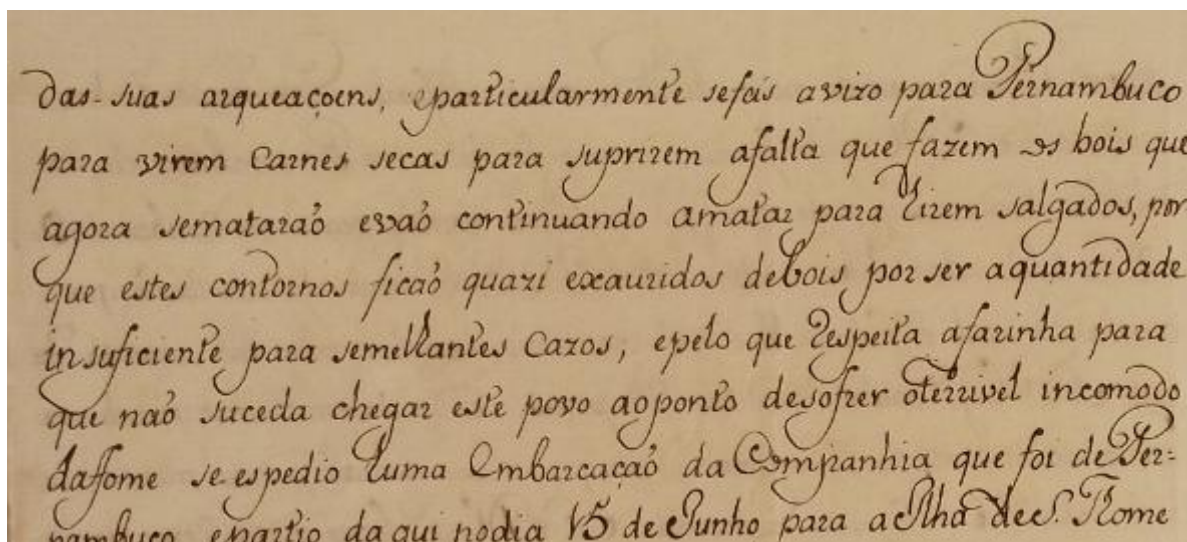 das suas arqueaçoens, eparticularmente sefás avizo para Pernambuco
para virem Carnes secas para suprirem afalta que fazem os bois que
agora semataraõ evaõ continuando amatar para hirem salgados, por
que estes contornos ficaõ quazi exauridos debois por ser aquantidade
insuficiente para semelhantes Cazos, epelo que Respeita afarinha para
que naõ suceda chegar este povo aoponto desofrer oterrivel incomodo
dafome se espedio huma Embarcaçaõ da Companhia que foi de Per=
nambuco, epartio da qui nodia 15 de Junho para a Ilha de S. Thome